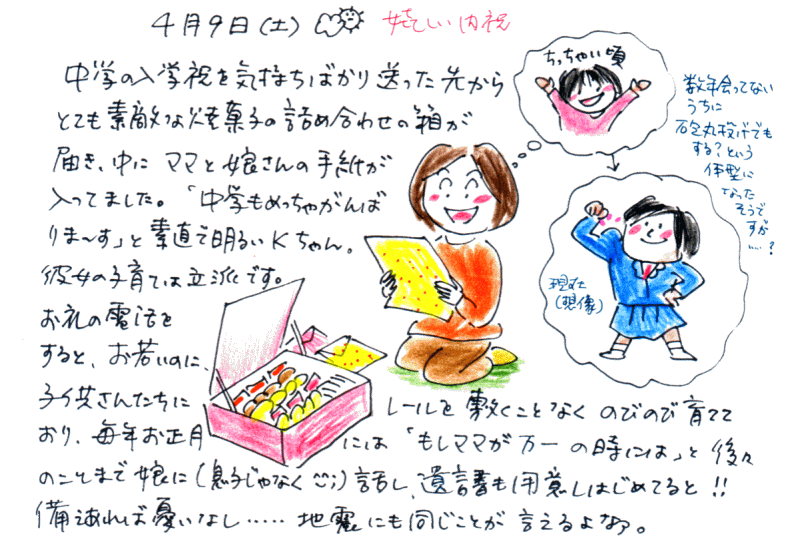 4月9日(土) 嬉しい内祝
中学の入学祝を気持ちばかり送った先から
とても素敵な焼菓子の詰め合わせの箱が
届き、中に ママと娘さんの手紙が
入ってました。「中学もめっちゃがんば
りま〜す」と素直で明るいKちゃん。
彼女の子育ては立派です。
お礼の電話を
すると、お若いのに、
子供さんたちに レールを敷くことなく のびのび育てて
おり、毎年お正月には「もしママが万一の時には」と後々
のことまで娘に(息子じゃなく^^;)話し、遺言書も用意しはじめてると!!
備えあれば憂いなし…… 地震にも同じことが言えるよなァ。
ちっちゃい頃
数年会ってない
うちに
砲丸投げでも
する?という
体型に
なった
そうで
すが
……?
現在
(想像)